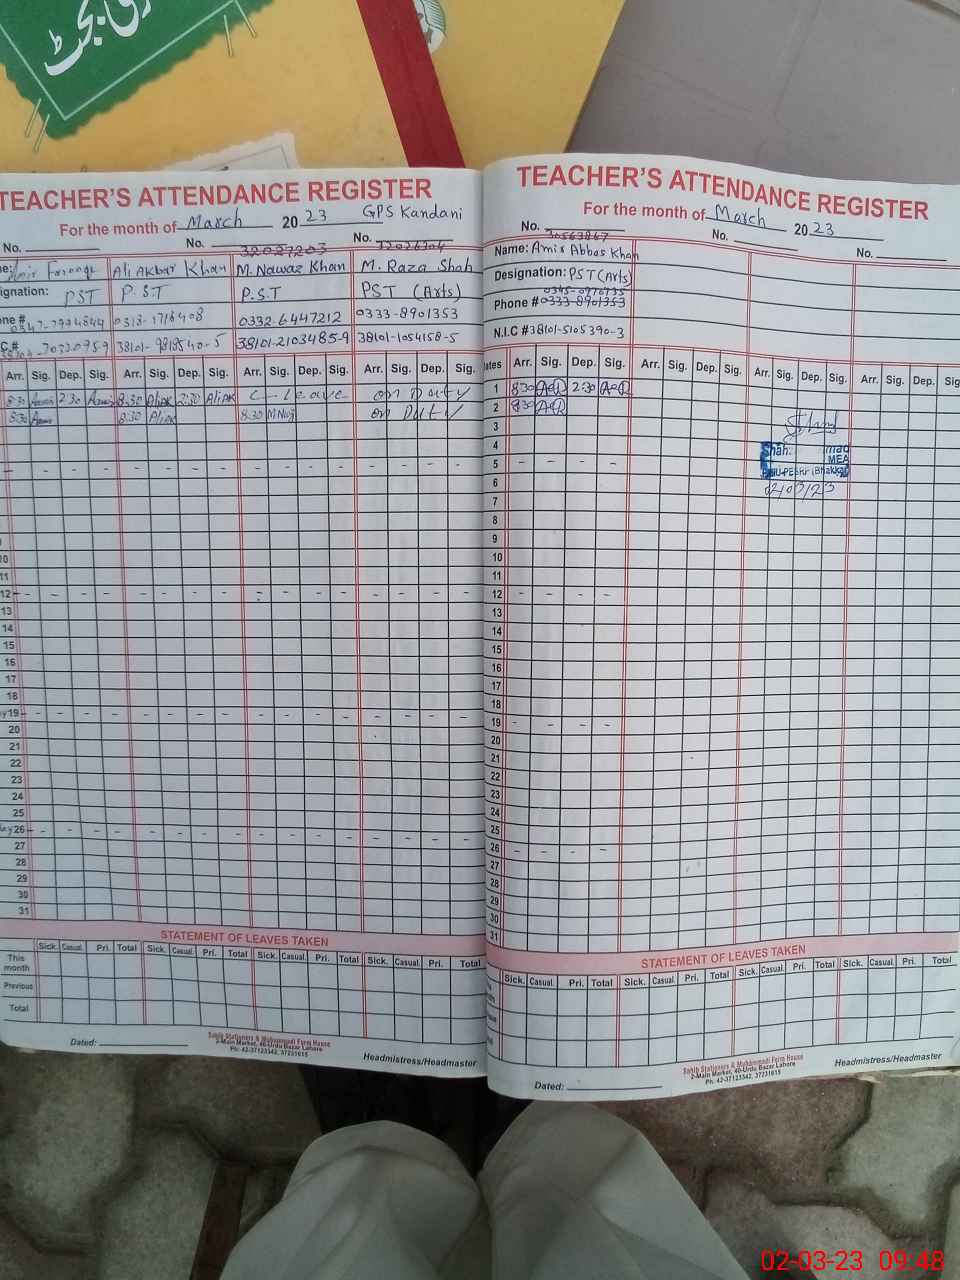 بجٹ
TEACHER'S ATTENDANCE REGISTER
For the month of March 2023 GPS Kandani
No. No. 32027203 No. 32026304
Amir Farooqe Ali Akbar Khan M. Nawaz Khan M. Raza Shah
ignation: PST P.S.T P.S.T PST (Arts)
ne # 0332-6447212 0333-8901353
38101-2103485-9 38101-1054158-5
Arr. Sig. Dep. Sig. Arr. Sig. Dep. Sig. Arr. Sig. Dep. Sig. Arr. Sig. Dep. Sig.
8:30 Amir 2:30 Amir 8:30 AliAK 2:30 AliAK C-Leave on Duty
8:30 Amir 8:30 AliAK 8:30 MNwz on Duty
10
11
12
13
14
15
16
17
18
19
20
21
22
23
24
25
26
27
28
29
30
31
STATEMENT OF LEAVES TAKEN
Sick. Casual. Pri. Total Sick. Casual. Pri. Total Sick. Casual. Pri. Total Sick. Casual. Pri. Total
This month
Previous
Total
Dated:
Sahib Stationers & Muhammadi Form House
2-Main Market, 40-Urdu Bazar Lahore
Ph: 42-37123342, 37231615
Headmistress/Headmaster
TEACHER'S ATTENDANCE REGISTER
For the month of March 2023
No. 30563867 No. No.
Name: Amir Abbas Khan
Designation: PST (Arts)
0345-0976735
Phone # 0333-8901353
N.I.C # 38101-5105390-3
ates Arr. Sig. Dep. Sig. Arr. Sig. Dep. Sig. Arr. Sig. Dep. Sig. Arr. Sig. Dep. Sig.
1 8:30 2:30
2 8:30
3
4
5
6
7
8
9
10
11
12
13
14
15
16
17
18
19
20
21
22
23
24
25
26
27
28
29
30
31
MEA
(Bhakkar)
02/03/23
STATEMENT OF LEAVES TAKEN
Sick. Casual. Pri. Total Sick. Casual. Pri. Total Sick. Casual. Pri. Total Sick. Casual. Pri. Total
Dated:
Sahib Stationers & Muhammadi Form House
2-Main Market, 40-Urdu Bazar Lahore
Ph. 42-37123342, 37231615
Headmistress/Headmaster
02-03-23 09:48